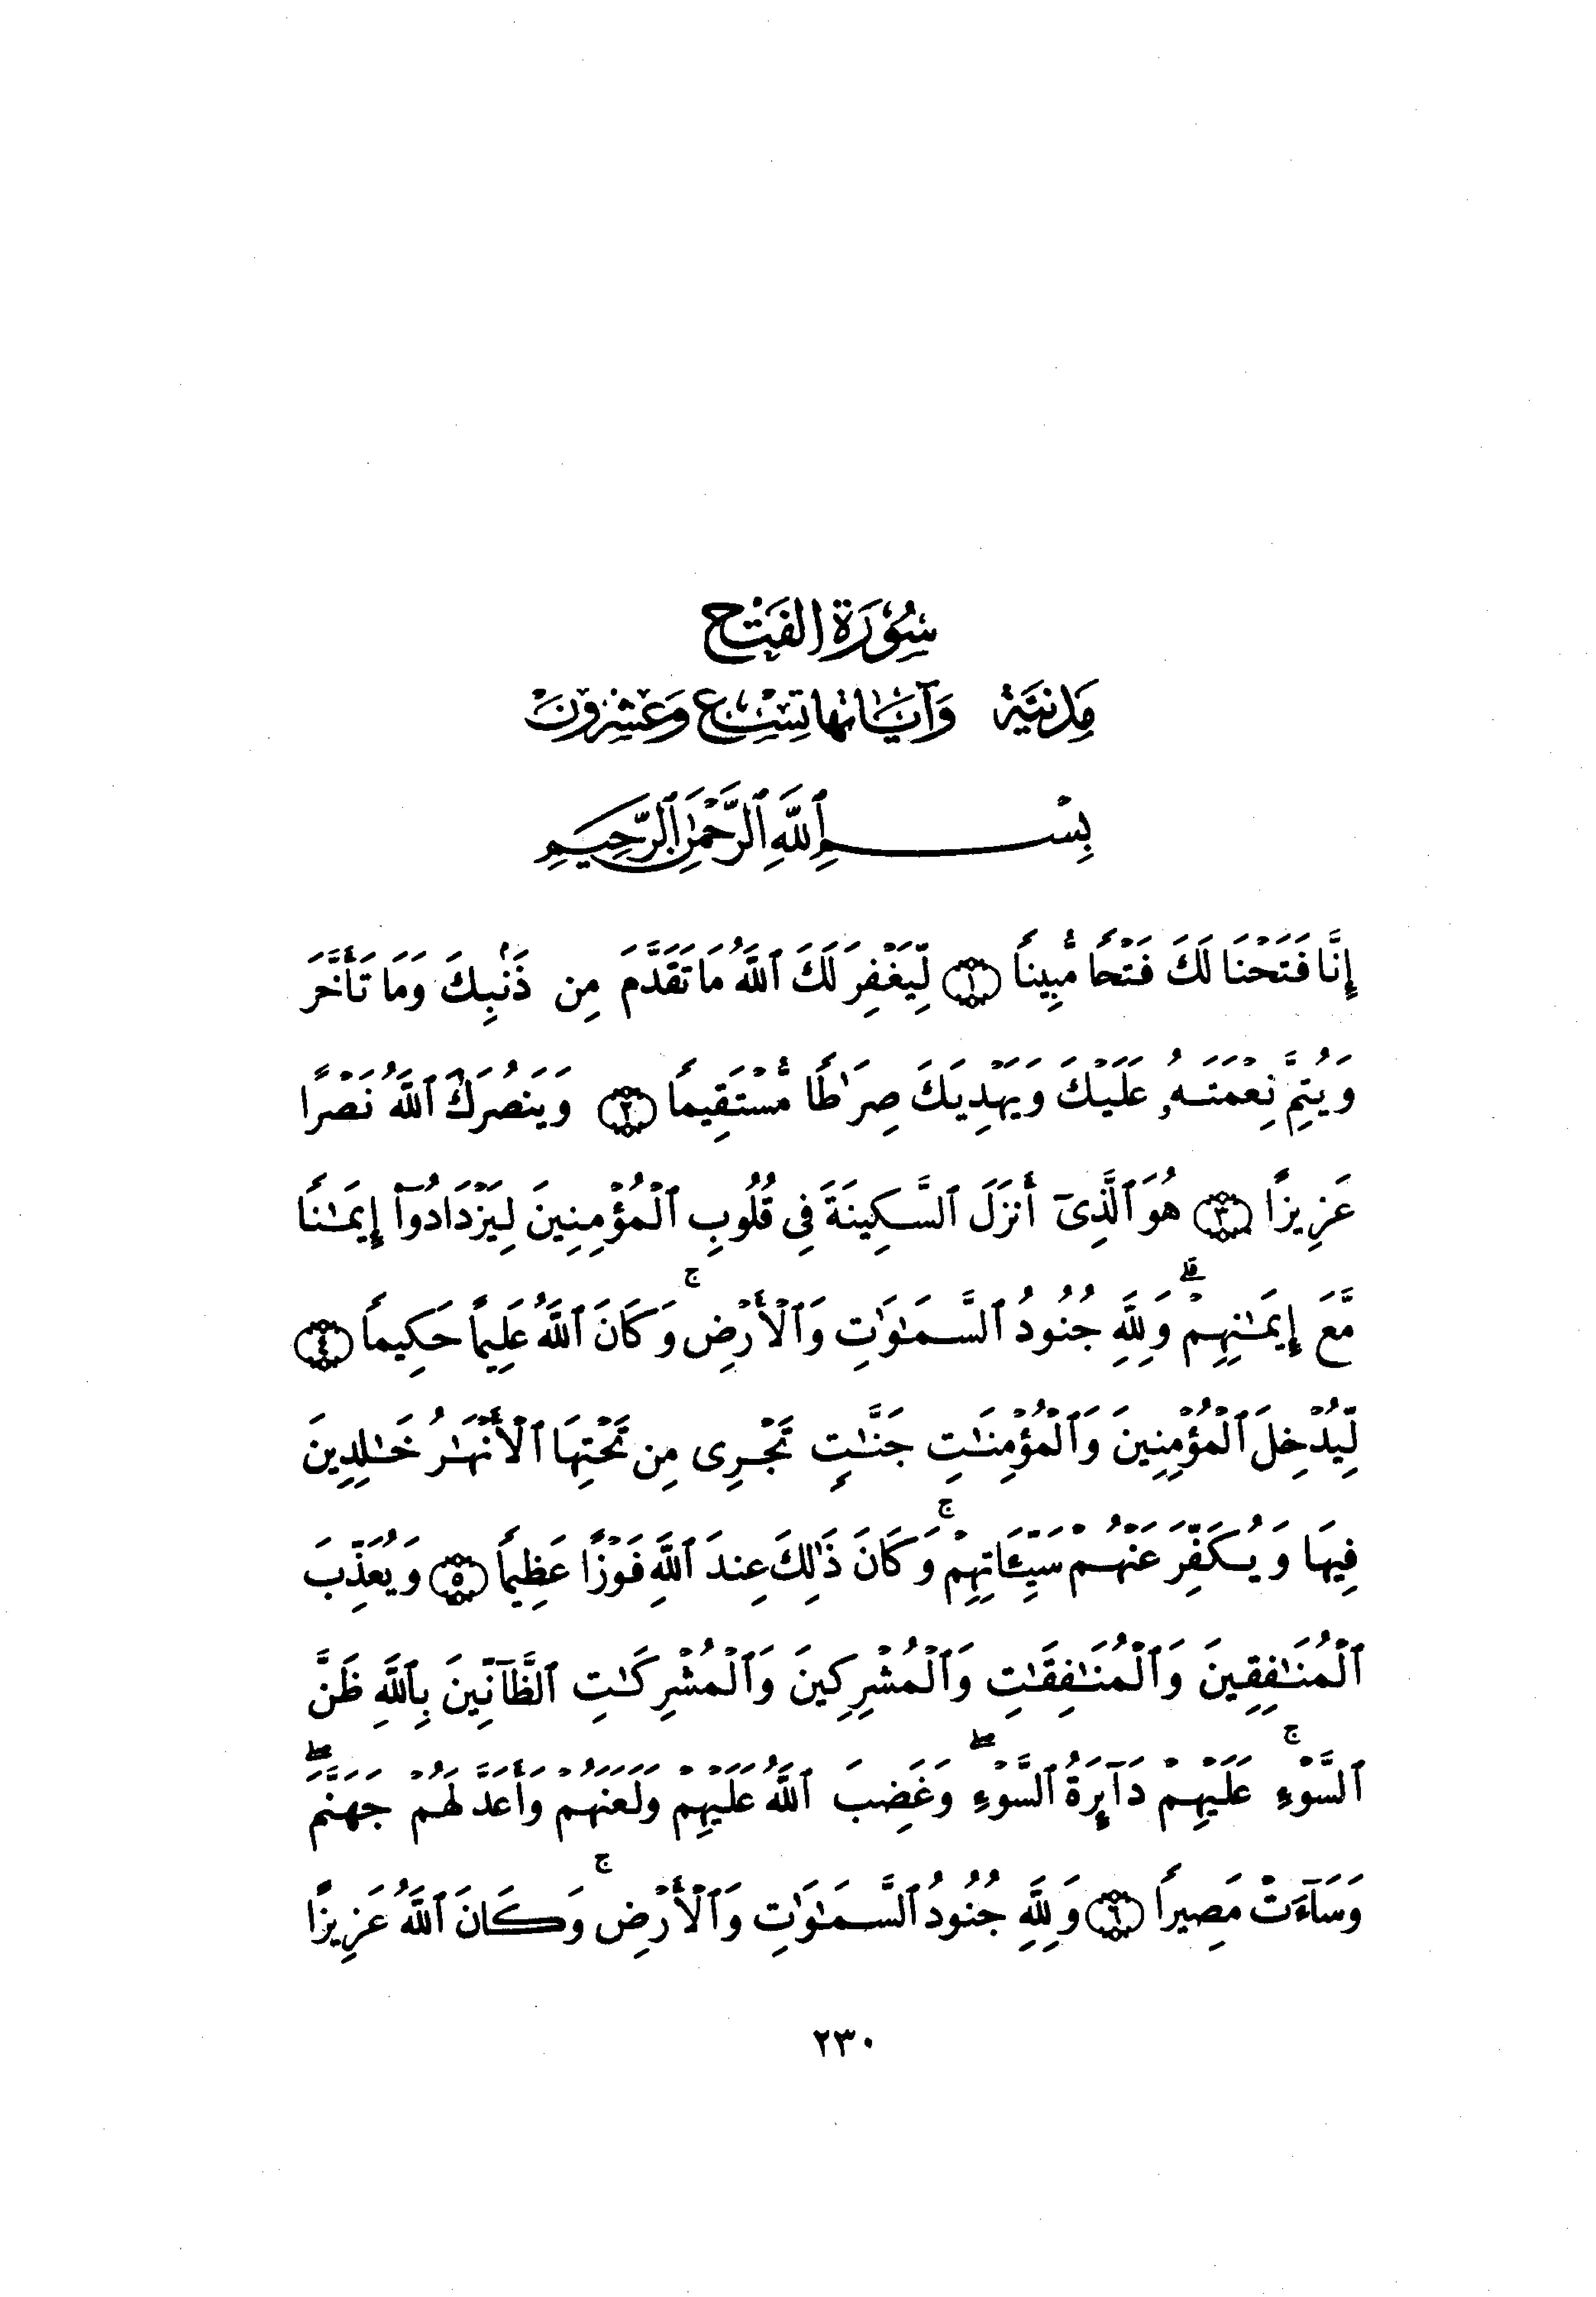 سُورَةُ الفَتْح
مَدَنِيَّة وَآيَاتُهَا تِسْعٌ وَعِشْرُونَ
بِسْمِ ٱللَّهِ ٱلرَّحْمَٰنِ ٱلرَّحِيمِ
إِنَّا فَتَحْنَا لَكَ فَتْحًا مُّبِينًا ۝١ لِّيَغْفِرَ لَكَ ٱللَّهُ مَا تَقَدَّمَ مِن ذَنۢبِكَ وَمَا تَأَخَّرَ
وَيُتِمَّ نِعْمَتَهُۥ عَلَيْكَ وَيَهْدِيَكَ صِرَٰطًا مُّسْتَقِيمًا ۝٢ وَيَنصُرَكَ ٱللَّهُ نَصْرًا
عَزِيزًا ۝٣ هُوَ ٱلَّذِىٓ أَنزَلَ ٱلسَّكِينَةَ فِى قُلُوبِ ٱلْمُؤْمِنِينَ لِيَزْدَادُوٓا۟ إِيمَٰنًا
مَّعَ إِيمَٰنِهِمْ ۗ وَلِلَّهِ جُنُودُ ٱلسَّمَٰوَٰتِ وَٱلْأَرْضِ ۚ وَكَانَ ٱللَّهُ عَلِيمًا حَكِيمًا ۝٤
لِّيُدْخِلَ ٱلْمُؤْمِنِينَ وَٱلْمُؤْمِنَٰتِ جَنَّٰتٍ تَجْرِى مِن تَحْتِهَا ٱلْأَنْهَٰرُ خَٰلِدِينَ
فِيهَا وَيُكَفِّرَ عَنْهُمْ سَيِّـَٔاتِهِمْ ۚ وَكَانَ ذَٰلِكَ عِندَ ٱللَّهِ فَوْزًا عَظِيمًا ۝٥ وَيُعَذِّبَ
ٱلْمُنَٰفِقِينَ وَٱلْمُنَٰفِقَٰتِ وَٱلْمُشْرِكِينَ وَٱلْمُشْرِكَٰتِ ٱلظَّآنِّينَ بِٱللَّهِ ظَنَّ
ٱلسَّوْءِ ۚ عَلَيْهِمْ دَآئِرَةُ ٱلسَّوْءِ ۖ وَغَضِبَ ٱللَّهُ عَلَيْهِمْ وَلَعَنَهُمْ وَأَعَدَّ لَهُمْ جَهَنَّمَ ۖ
وَسَآءَتْ مَصِيرًا ۝٦ وَلِلَّهِ جُنُودُ ٱلسَّمَٰوَٰتِ وَٱلْأَرْضِ ۚ وَكَانَ ٱللَّهُ عَزِيزًا
٢٣٠